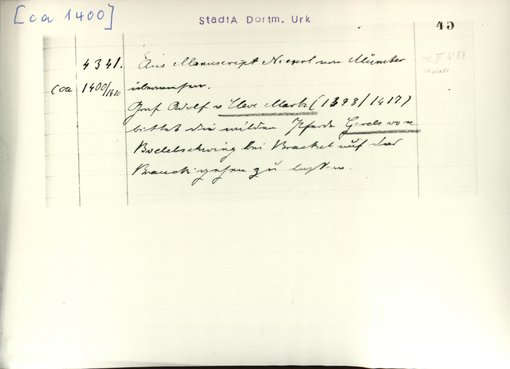 [ca 1400]
StadtA Dortm. Urk
45
4341. Aus Manuscript Niesert von Münster
ca 1400/1410 überwiesen.
Graf Adolf v Cleve Mark (1398/1417)
bittet die wilden Pferde Gerds von
Bodelschwing bei Brackel auf der
Brauck gehen zu